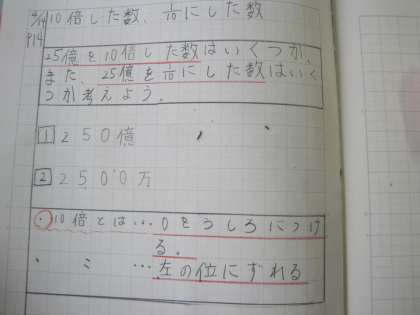 10倍した数、1/10にした数
P14
25億を10倍した数はいくつか、
また、25億を1/10にした数はいく
つか考えよう。
1 250億
2 2500万
・10倍とは…0をうしろにつけ
る。
、 、 …左の位にずれる